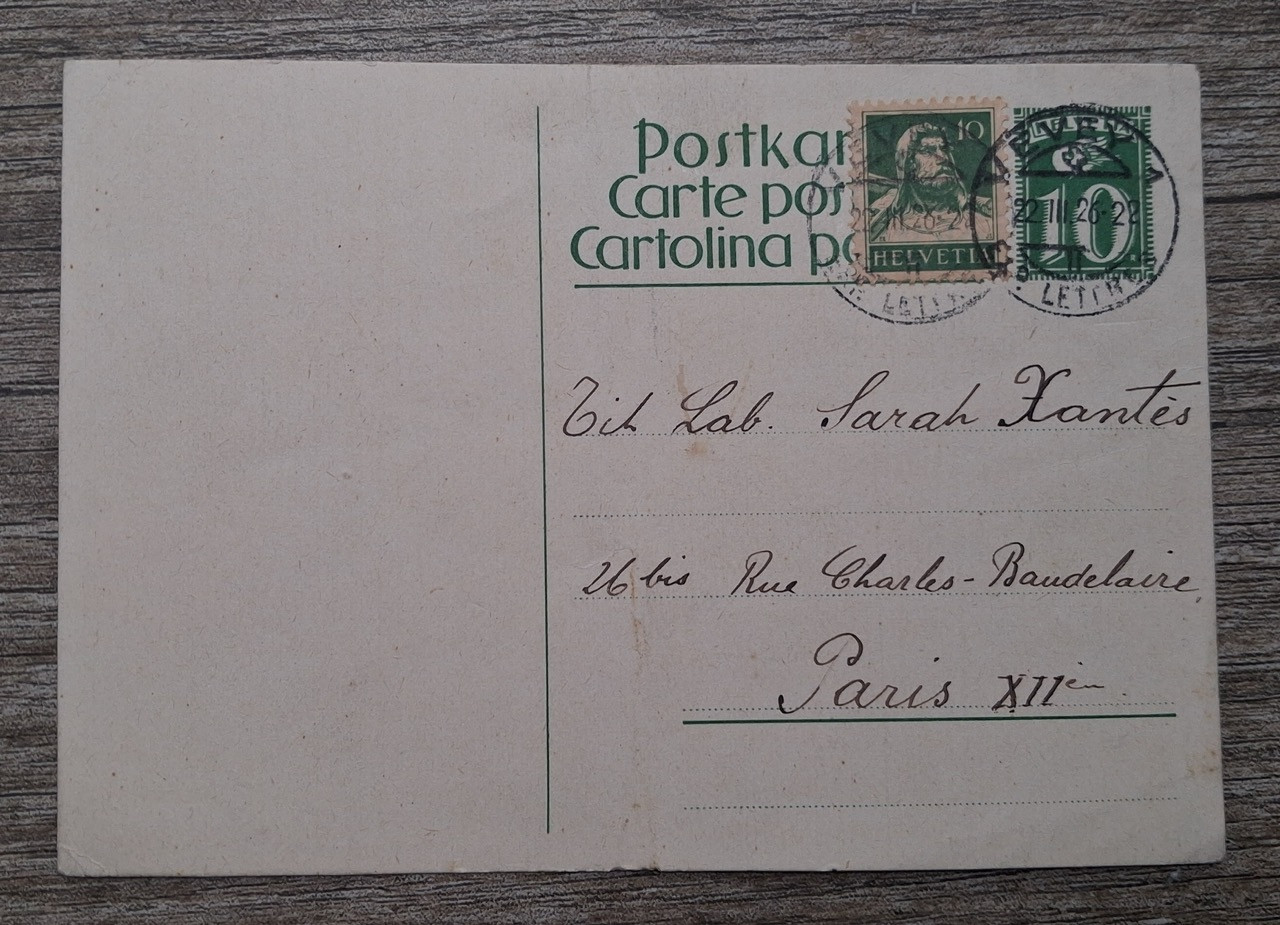 Postkar
Carte pos
Cartolina po
10
HELVETIA
VEVEY 1
22.III.26-22
10
Tit Lab. Sarah Xantès
26 bis Rue Charles-Baudelaire,
Paris XIIèm.